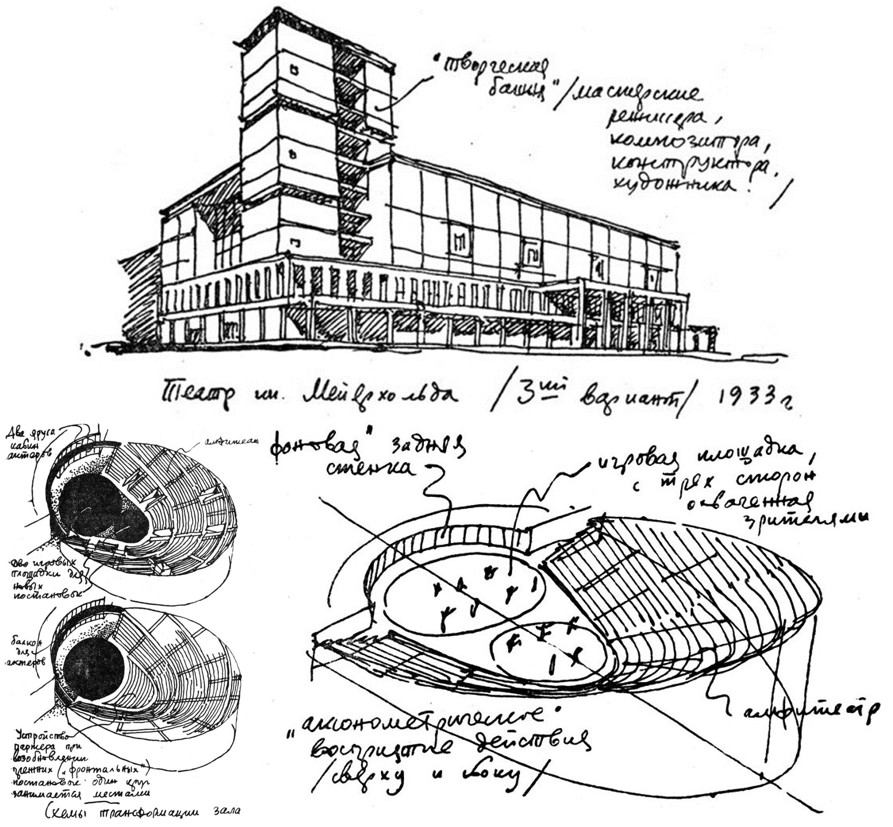 "творческая
башня" /мастерские
режиссера,
композитора,
конструктора,
художника./
Театр им. Мейерхольда /3ий вариант/ 1933 г
Два яруса
кабин
актеров
амфитеатр
две игровых
площадки для
новых
постановок
балкон
для
актеров
Устройство
партера при
возобновлении
прежних ("фронтальных")
постановок: один круг
занимается местами
Схемы трансформации зала
фоновая" задняя
стенка
игровая площадка,
с трех сторон
охваченная
зрителями
амфитеатр
"аксонометрическое"
восприятие действия
/сверху и сбоку/